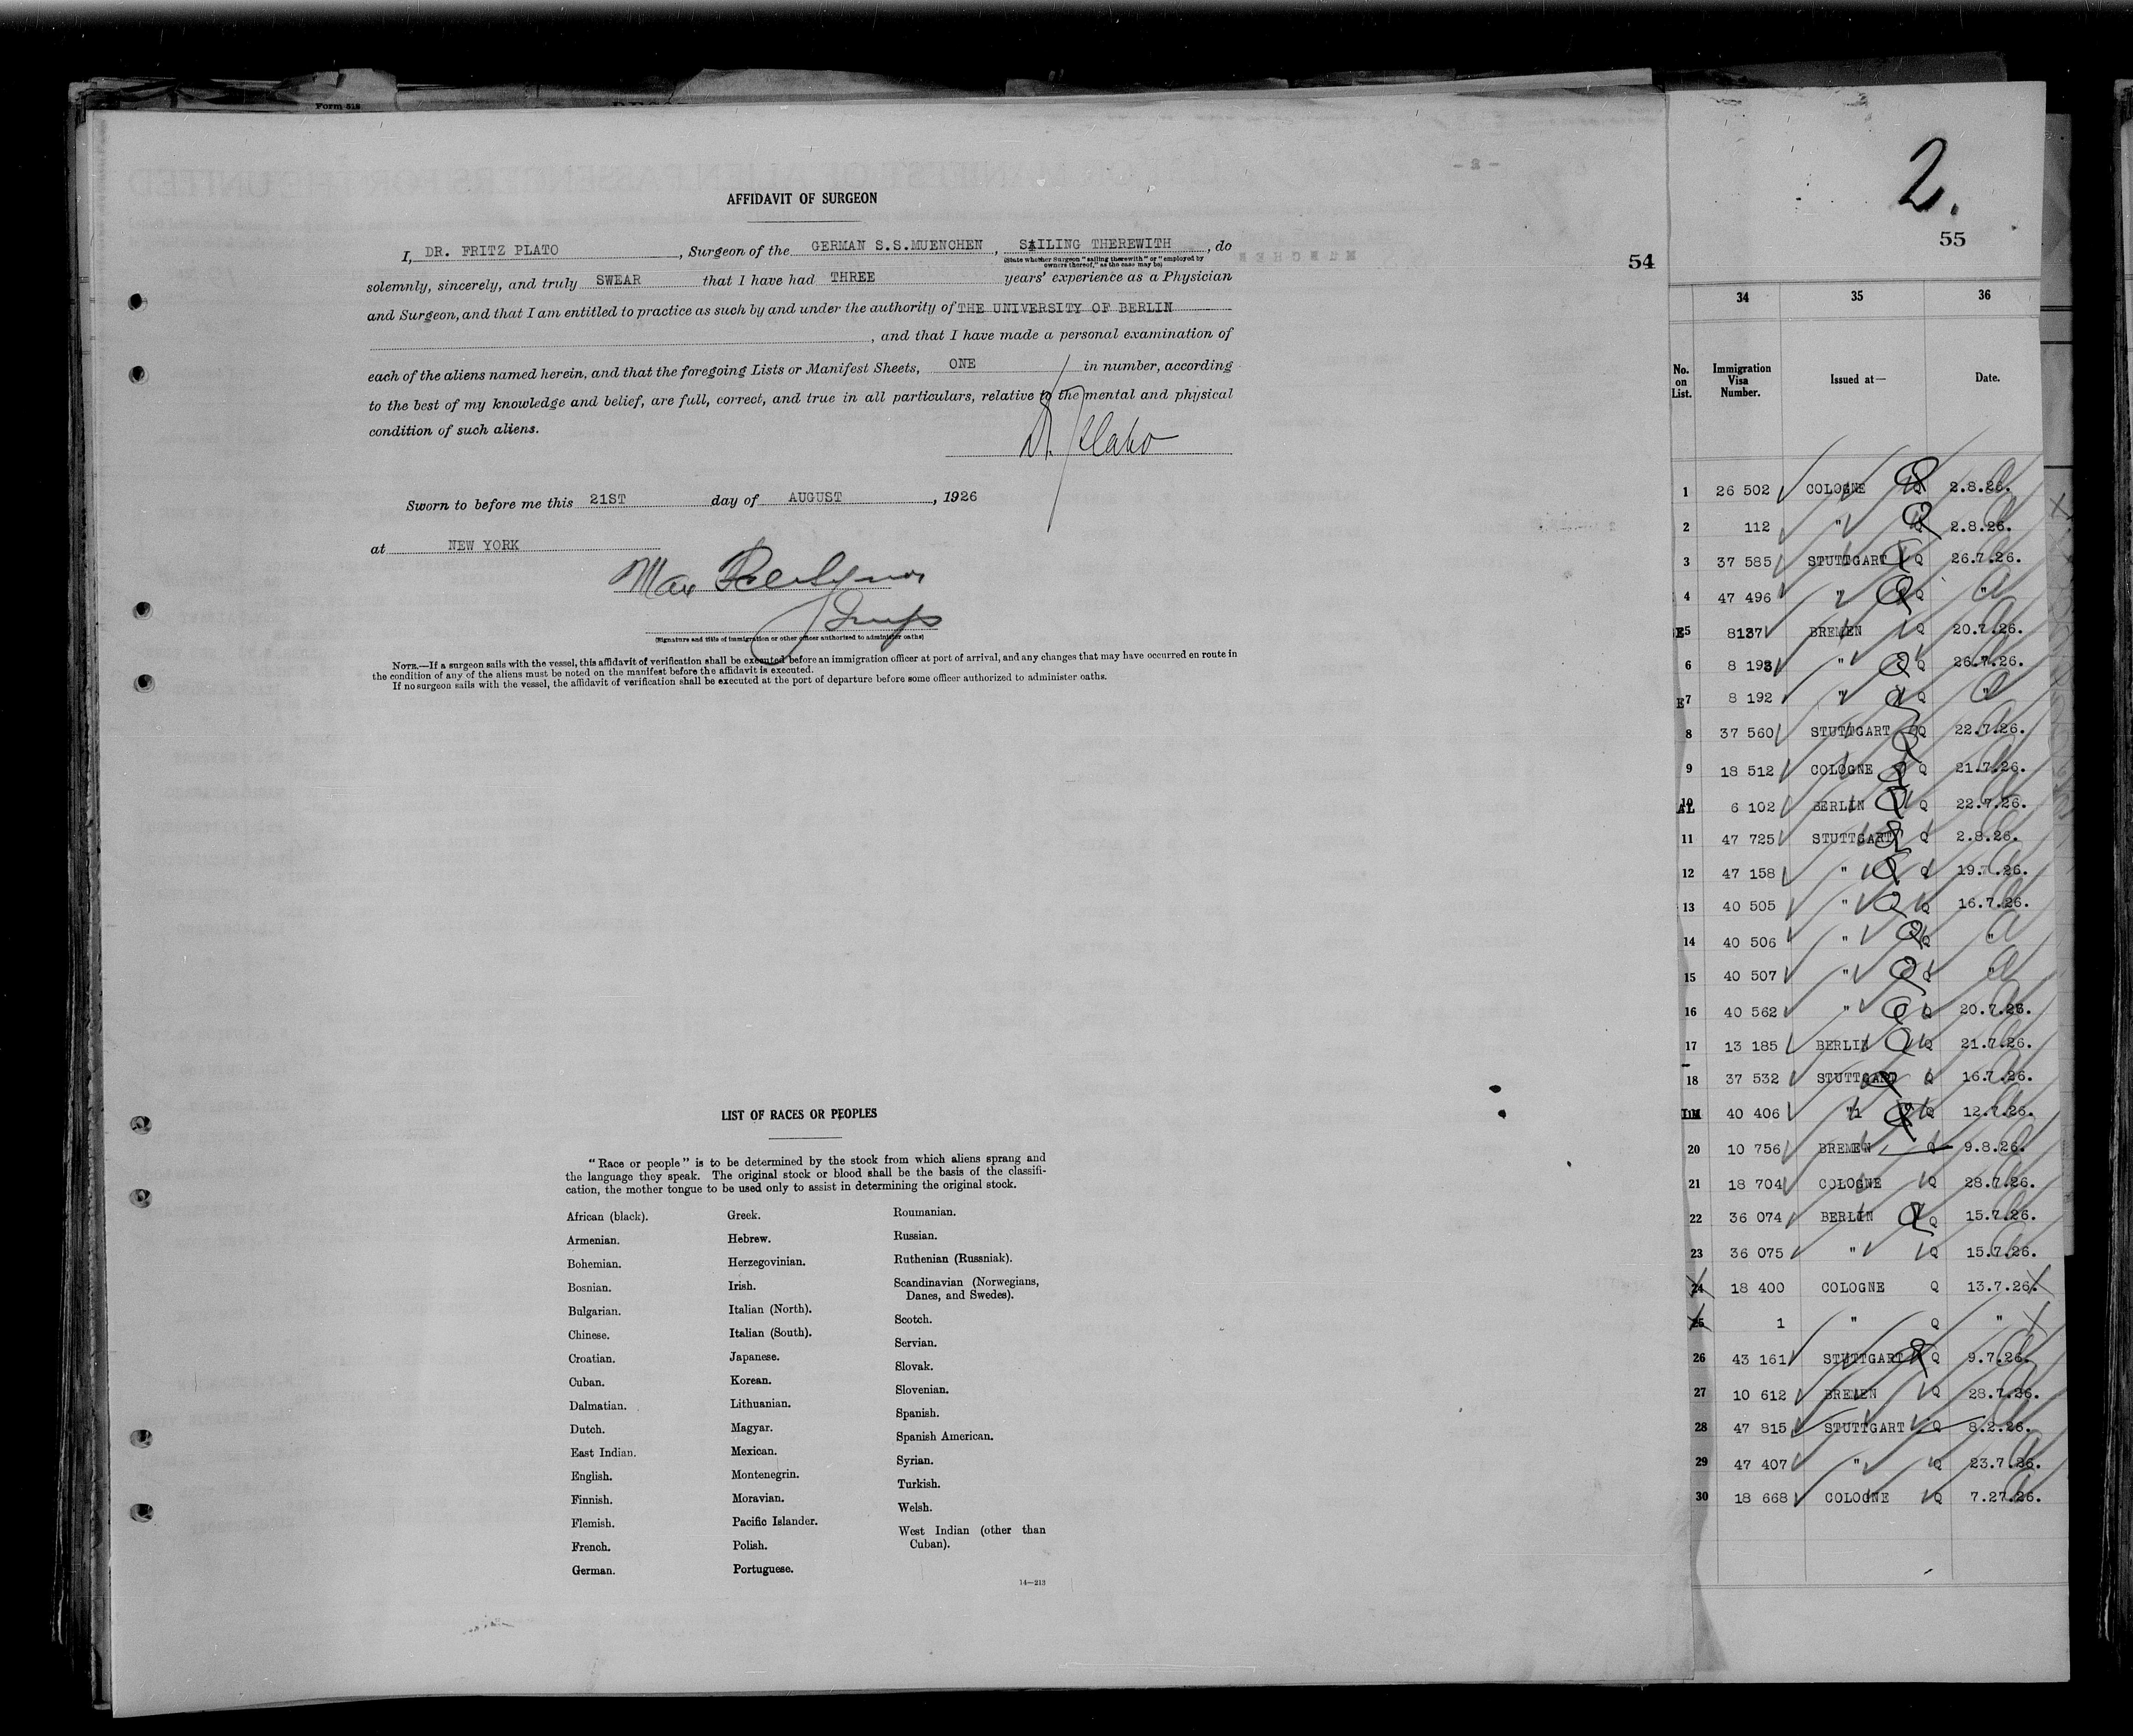 Form 519
AFFIDAVIT OF SURGEON
I, DR. FRITZ PLATO, Surgeon of the GERMAN S.S.MUENCHEN, SAILING THEREWITH, do
(State whether Surgeon "sailing therewith" or "employed by
owners thereof," as the case may be)
solemnly, sincerely, and truly SWEAR that I have had THREE years' experience as a Physician
and Surgeon, and that I am entitled to practice as such by and under the authority of THE UNIVERSITY OF BERLIN
, and that I have made a personal examination of
each of the aliens named herein, and that the foregoing Lists or Manifest Sheets, ONE in number, according
to the best of my knowledge and belief, are full, correct, and true in all particulars, relative to the mental and physical
condition of such aliens.
Dr. Plato
Sworn to before me this 21ST day of AUGUST, 1926
at NEW YORK
Max
(Signature and title of immigration or other officer authorized to administer oaths)
NOTE.—If a surgeon sails with the vessel, this affidavit of verification shall be executed before an immigration officer at port of arrival, and any changes that may have occurred en route in
the condition of any of the aliens must be noted on the manifest before the affidavit is executed.
If no surgeon sails with the vessel, the affidavit of verification shall be executed at the port of departure before some officer authorized to administer oaths.
LIST OF RACES OR PEOPLES
"Race or people" is to be determined by the stock from which aliens sprang and
the language they speak. The original stock or blood shall be the basis of the classifi-
cation, the mother tongue to be used only to assist in determining the original stock.
African (black).
Armenian.
Bohemian.
Bosnian.
Bulgarian.
Chinese.
Croatian.
Cuban.
Dalmatian.
Dutch.
East Indian.
English.
Finnish.
Flemish.
French.
German.
Greek.
Hebrew.
Herzegovinian.
Irish.
Italian (North).
Italian (South).
Japanese.
Korean.
Lithuanian.
Magyar.
Mexican.
Montenegrin.
Moravian.
Pacific Islander.
Polish.
Portuguese.
Roumanian.
Russian.
Ruthenian (Russniak).
Scandinavian (Norwegians,
Danes, and Swedes).
Scotch.
Servian.
Slovak.
Slovenian.
Spanish.
Spanish American.
Syrian.
Turkish.
Welsh.
West Indian (other than
Cuban).
14—213
54
2.
55
34 35 36
No. on List. Immigration Visa Number. Issued at— Date.
1 26 502 COLOGNE Q 2.8.26.
2 112 " Q 2.8.26.
3 37 585 STUTTGART Q 26.7.26.
4 47 496 " Q "
5 8137 BREMEN Q 20.7.26.
6 8 193 " Q 26.7.26.
7 8 192 " Q "
8 37 560 STUTTGART Q 22.7.26.
9 18 512 COLOGNE Q 21.7.26.
10 6 102 BERLIN Q 22.7.26.
11 47 725 STUTTGART Q 2.8.26.
12 47 158 " Q 19.7.26.
13 40 505 " Q 16.7.26.
14 40 506 " Q "
15 40 507 " Q "
16 40 562 " Q 20.7.26.
17 13 185 BERLIN Q 21.7.26.
18 37 532 STUTTGART Q 16.7.26.
40 406 " Q 12.7.26.
20 10 756 BREMEN Q 9.8.26.
21 18 704 COLOGNE Q 28.7.26.
22 36 074 BERLIN Q 15.7.26.
23 36 075 " Q 15.7.26.
24 18 400 COLOGNE Q 13.7.26.
25 1 " Q "
26 43 161 STUTTGART Q 9.7.26.
27 10 612 BREMEN Q 28.7.26.
28 47 815 STUTTGART Q 8.2.26.
29 47 407 " Q 23.7.26.
30 18 668 COLOGNE Q 7.27.26.